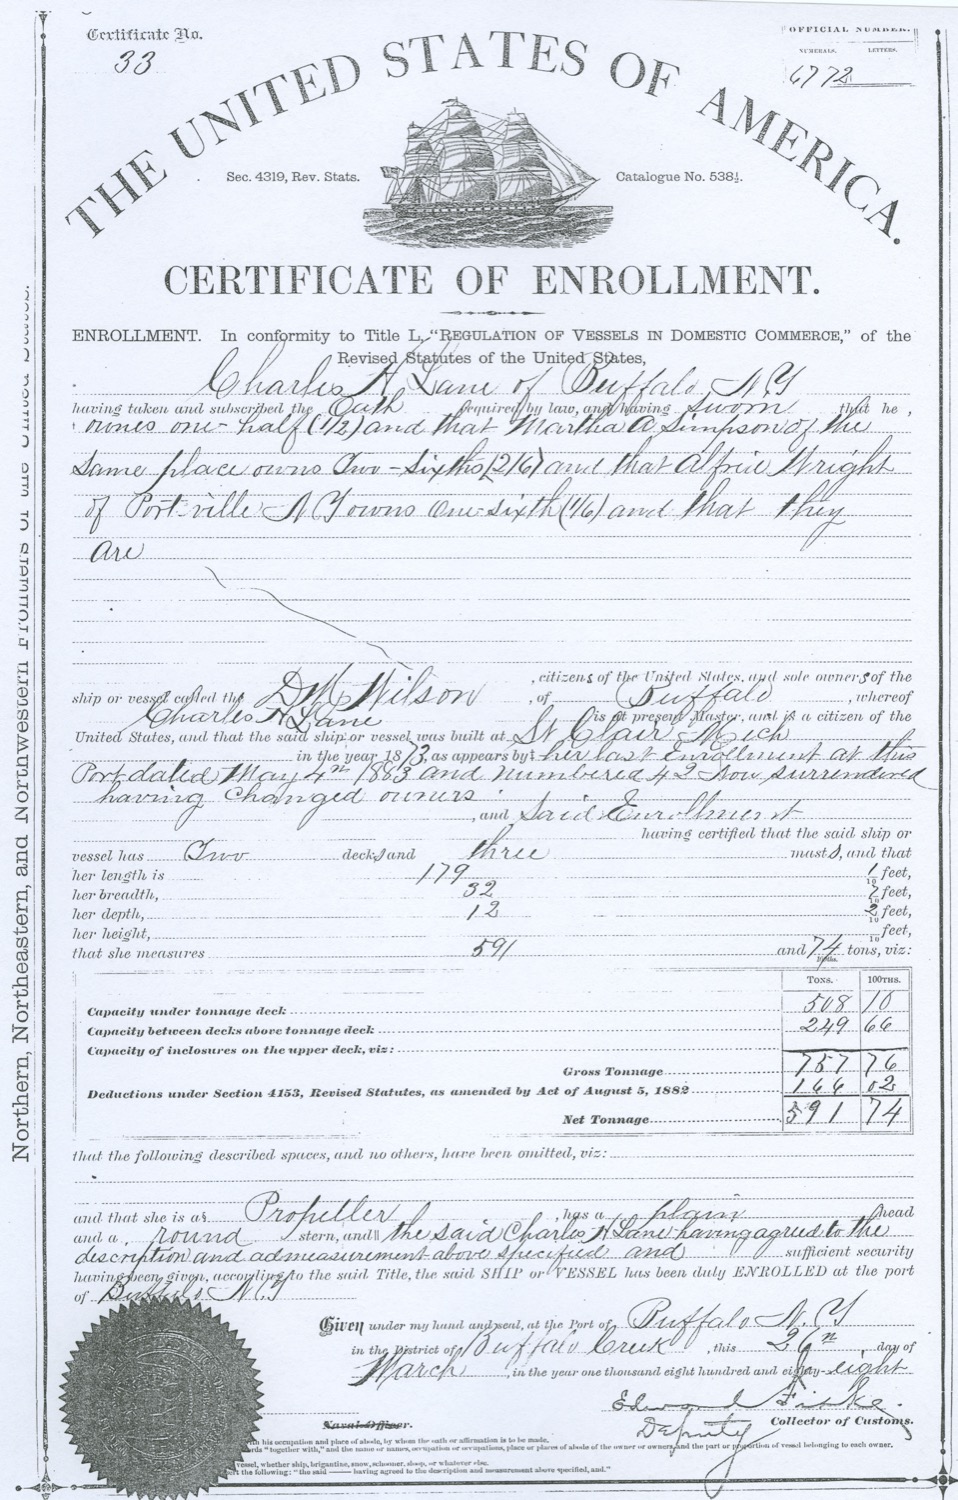 Certificate No.
33
OFFICIAL NUMBER.
NUMERALS. LETTERS.
6772
THE UNITED STATES OF AMERICA.
Sec. 4319, Rev. Stats.
Catalogue No. 538½.
CERTIFICATE OF ENROLLMENT.
ENROLLMENT. In conformity to Title L, "REGULATION OF VESSELS IN DOMESTIC COMMERCE," of the
Revised Statutes of the United States,
Charles H Lane of Buffalo N Y
having taken and subscribed the Oath required by law, and having sworn that he
owns one-half (1/2) and that Martha A Simpson of the
same place owns Two-sixths (2/6) and that Alfric Wright
of Portville N Y owns One-sixth (1/6) and that they
are
, citizens of the United States, and sole owners of the
ship or vessel called the D M Wilson, of Buffalo, whereof
Charles H Lane is at present Master, and is a citizen of the
United States, and that the said ship or vessel was built at St Clair Mich
in the year 1873, as appears by her last Enrollment at this
Port dated May 4th 1883 and numbered 42 Now surrendered
having changed owners
, and Said Enrollment
having certified that the said ship or
vessel has Two decks and three masts, and that
her length is 179 1/10 feet,
her breadth, 32 7/10 feet,
her depth, 12 2/10 feet,
her height, /10 feet,
that she measures 591 and 74 tons, viz:
TONS. 100THS.
Capacity under tonnage deck 508 10
Capacity between decks above tonnage deck 249 66
Capacity of inclosures on the upper deck, viz:
Gross Tonnage 757 76
Deductions under Section 4153, Revised Statutes, as amended by Act of August 5, 1882 166 02
Net Tonnage 591 74
that the following described spaces, and no others, have been omitted, viz:
and that she is a Propeller, has a plain head
and a round stern, and the said Charles H Lane having agreed to the
description and admeasurement above specified and sufficient security
having been given, according to the said Title, the said SHIP or VESSEL has been duly ENROLLED at the port
of Buffalo N.Y
Given under my hand and seal, at the Port of Buffalo N.Y
in the District of Buffalo Creek, this 26th day of
March, in the year one thousand eight hundred and eighty-eight
Edward Fiske
Deputy Collector of Customs.
Naval Officer.
his occupation and place of abode, by whom the oath or affirmation is to be made.
"together with," and the name or names, occupation or occupations, place or places of abode of the owner or owners, and the part or proportion of vessel belonging to each owner.
vessel, whether ship, brigantine, snow, schooner, sloop, or whatever else.
the following: "the said —— having agreed to the description and measurement above specified, and."
Northern, Northeastern, and Northwestern Frontiers of the United States.